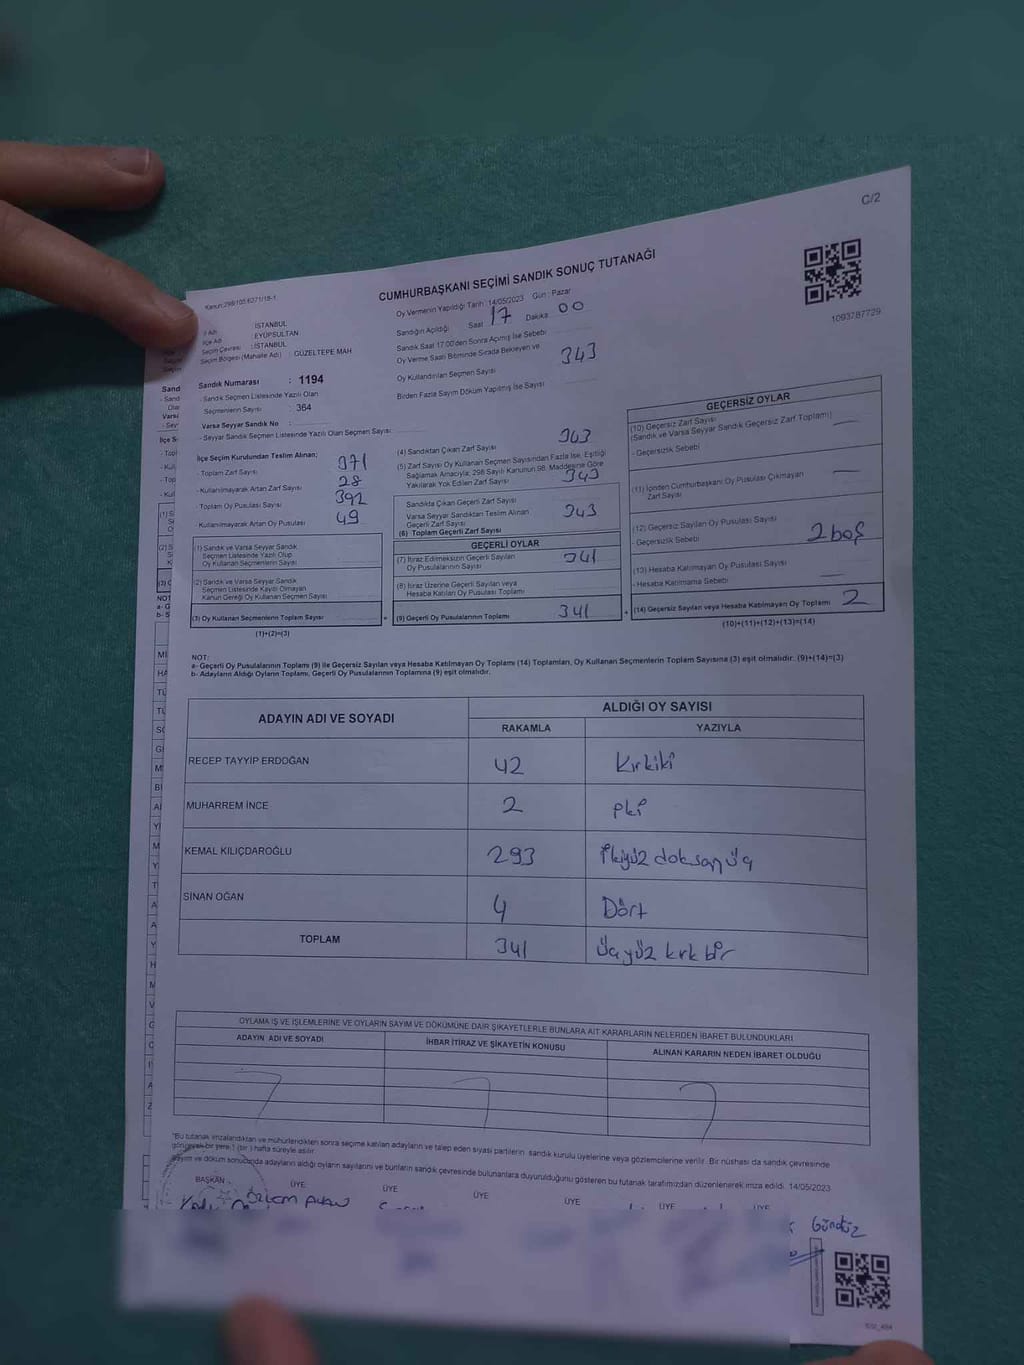 C/2
Kanun:298/105,6271/18-1
CUMHURBAŞKANI SEÇİMİ SANDIK SONUÇ TUTANAĞI
1093787729
İl Adı : İSTANBUL
İlçe Adı : EYÜPSULTAN
Seçim Çevresi : İSTANBUL
Seçim Bölgesi (Mahalle Adı) : GÜZELTEPE MAH
Sandık Numarası : 1194
- Sandık Seçmen Listesinde Yazılı Olan
Seçmenlerin Sayısı : 364
Varsa Seyyar Sandık No :
- Seyyar Sandık Seçmen Listesinde Yazılı Olan Seçmen Sayısı
Oy Vermenin Yapıldığı Tarih : 14/05/2023 Gün : Pazar
Sandığın Açıldığı Saat 17 Dakika 00
Sandık Saat 17:00'den Sonra Açılmış İse Sebebi
Oy Verme Saati Bitiminde Sırada Bekleyen ve
Oy Kullandırılan Seçmen Sayısı 343
Birden Fazla Sayım Döküm Yapılmış İse Sayısı
İlçe Seçim Kurulundan Teslim Alınan;
- Toplam Zarf Sayısı 371
- Kullanılmayarak Artan Zarf Sayısı 28
- Toplam Oy Pusulası Sayısı 392
- Kullanılmayarak Artan Oy Pusulası 49
(1) Sandık ve Varsa Seyyar Sandık
Seçmen Listesinde Yazılı Olup
Oy Kullanan Seçmen Sayısı
(2) Sandık ve Varsa Seyyar Sandık
Seçmen Listesinde Kaydı Olmayan
Kanun Gereği Oy Kullanan Seçmen Sayısı
(3) Oy Kullanan Seçmenlerin Toplam Sayısı
(1)+(2)=(3)
(4) Sandıktan Çıkan Zarf Sayısı 343
(5) Zarf Sayısı Oy Kullanan Seçmen Sayısından Fazla İse, Eşitliği
Sağlamak Amacıyla; 298 Sayılı Kanunun 98. Maddesine Göre
Yakılarak Yok Edilen Zarf Sayısı 343
Sandıkta Çıkan Geçerli Zarf Sayısı
Varsa Seyyar Sandıktan Teslim Alınan
Geçerli Zarf Sayısı 343
(6) Toplam Geçerli Zarf Sayısı
GEÇERLİ OYLAR
(7) İtiraz Edilmeksizin Geçerli Sayılan
Oy Pusulalarının Sayısı 341
(8) İtiraz Üzerine Geçerli Sayılan veya
Hesaba Katılan Oy Pusulası Toplamı
(9) Geçerli Oy Pusulalarının Toplamı 341
+
GEÇERSİZ OYLAR
(10) Geçersiz Zarf Sayısı
(Sandık ve Varsa Seyyar Sandık Geçersiz Zarf Toplamı)
- Geçersizlik Sebebi
(11) İçinden Cumhurbaşkanı Oy Pusulası Çıkmayan
Zarf Sayısı
(12) Geçersiz Sayılan Oy Pusulası Sayısı
- Geçersizlik Sebebi 2 boş
(13) Hesaba Katılmayan Oy Pusulası Sayısı
- Hesaba Katılmama Sebebi
(14) Geçersiz Sayılan veya Hesaba Katılmayan Oy Toplamı 2
(10)+(11)+(12)+(13)=(14)
NOT:
a- Geçerli Oy Pusulalarının Toplamı (9) ile Geçersiz Sayılan veya Hesaba Katılmayan Oy Toplamı (14) Toplamları, Oy Kullanan Seçmenlerin Toplam Sayısına (3) eşit olmalıdır. (9)+(14)=(3)
b- Adayların Aldığı Oyların Toplamı, Geçerli Oy Pusulalarının Toplamına (9) eşit olmalıdır.
ADAYIN ADI VE SOYADI
ALDIĞI OY SAYISI
RAKAMLA YAZIYLA
RECEP TAYYİP ERDOĞAN 42 Kırkiki
MUHARREM İNCE 2 İki
KEMAL KILIÇDAROĞLU 293 İkiyüz doksan üç
SİNAN OĞAN 4 Dört
TOPLAM 341 üçyüz kırk bir
OYLAMA İŞ VE İŞLEMLERİNE VE OYLARIN SAYIM VE DÖKÜMÜNE DAİR ŞİKAYETLERLE BUNLARA AİT KARARLARIN NELERDEN İBARET BULUNDUKLARI
ADAYIN ADI VE SOYADI İHBAR İTİRAZ VE ŞİKAYETİN KONUSU ALINAN KARARIN NEDEN İBARET OLDUĞU
*Bu tutanak imzalandıktan ve mühürlendikten sonra seçime katılan adayların ve talep eden siyasi partilerin sandık kurulu üyelerine veya gözlemcilerine verilir. Bir nüshası da sandık çevresinde
görülecek bir yere 1 (bir ) hafta süreyle asılır.
Sayım ve döküm sonucunda adayların aldığı oyların sayılarını ve bunların sandık çevresinde bulunanlara duyurulduğunu gösteren bu tutanak tarafımızdan düzenlenerek imza edildi. 14/05/2023
BAŞKAN ÜYE ÜYE ÜYE ÜYE ÜYE ÜYE
Gündüz